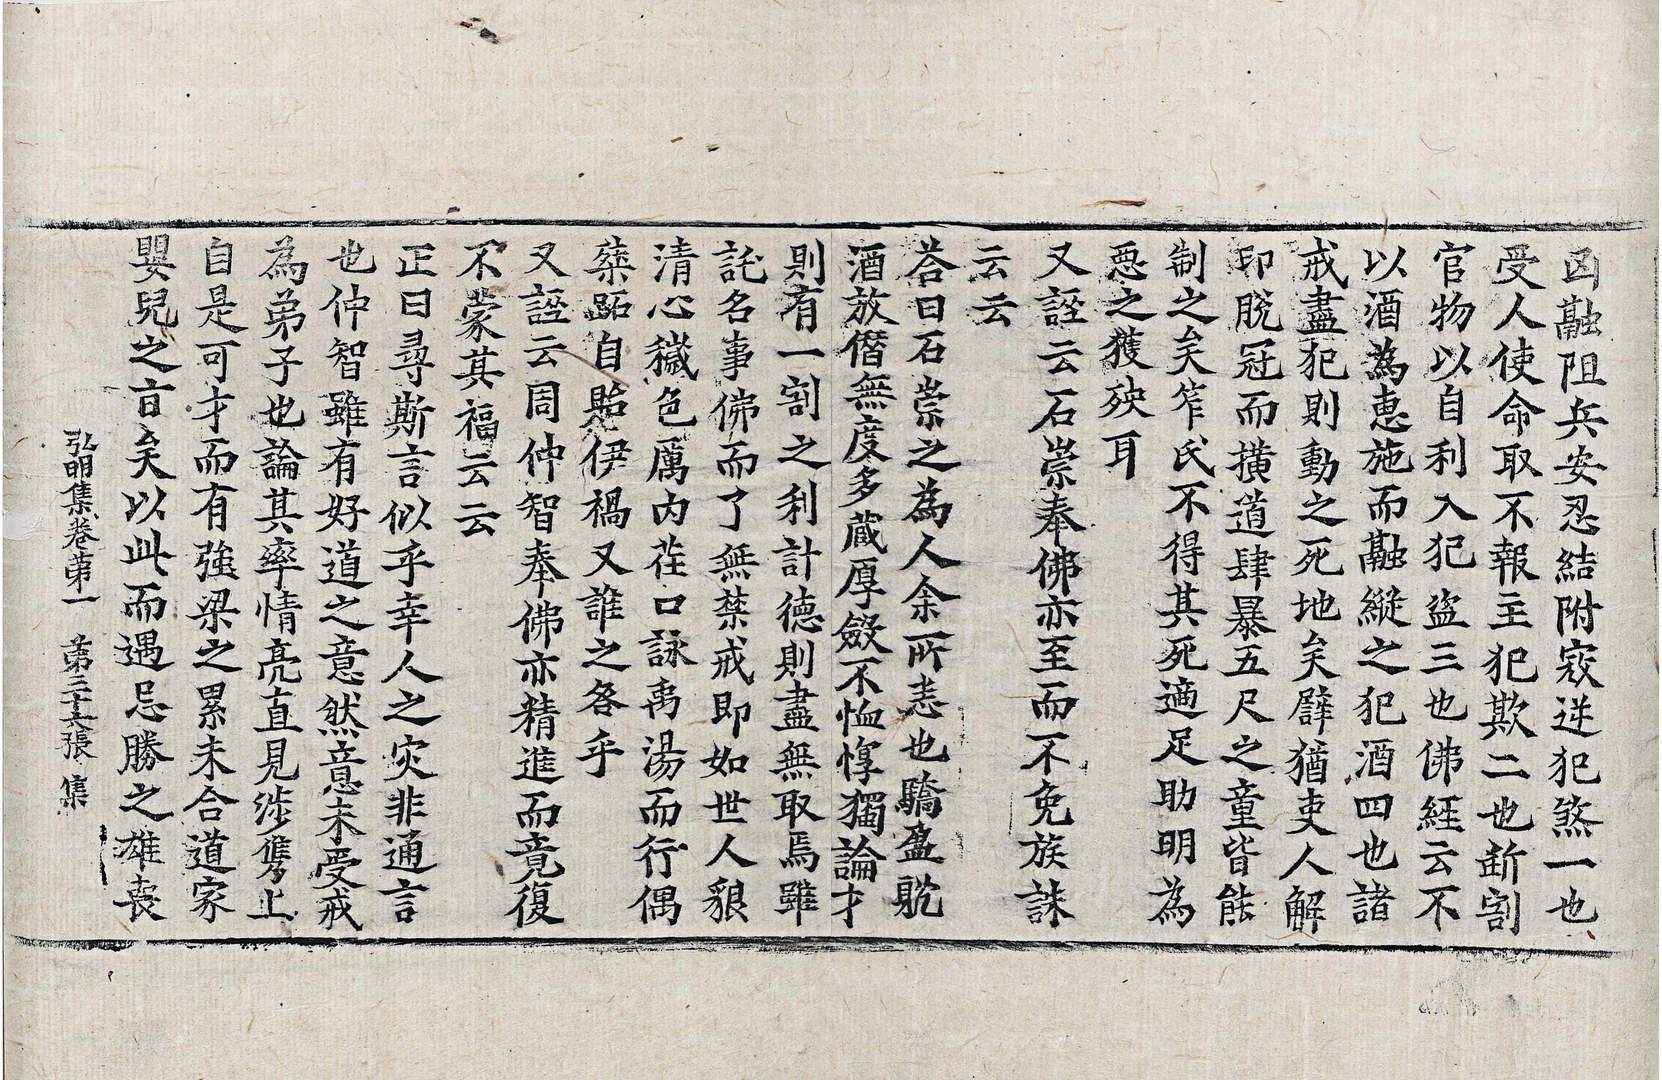 凶融阻兵安忍結附寇逆犯煞一也
受人使命取不報主犯欺二也斷割
官物以自利入犯盜三也佛經云不
以酒為惠施而融縱之犯酒四也諸
戒盡犯則動之死地矣譬猶吏人解
印脫冠而橫道肆暴五尺之童皆能
制之矣笮氏不得其死適足助明為
惡之獲殃耳
又誣云石崇奉佛亦至而不免族誅
云云
荅曰石崇之為人余所悉也驕盈躭
酒放僭無度多蔵厚斂不恤惸獨論才
則有一割之利計德則盡無取焉雖
託名事佛而了無禁戒即如世人貌
清心穢色厲內荏口詠禹湯而行偶
桀跖自貽伊禍又誰之咎乎
又誣云周仲智奉佛亦精進而竟復
不蒙其福云云
正曰尋斯言似乎幸人之灾非通言
也仲智雖有好道之意然意未受戒
為弟子也論其率情亮直見涉雋上
自是可才而有強梁之累未合道家
嬰兒之旨矣以此而遇忌勝之雄喪
弘明集卷第一 第三十六張 集